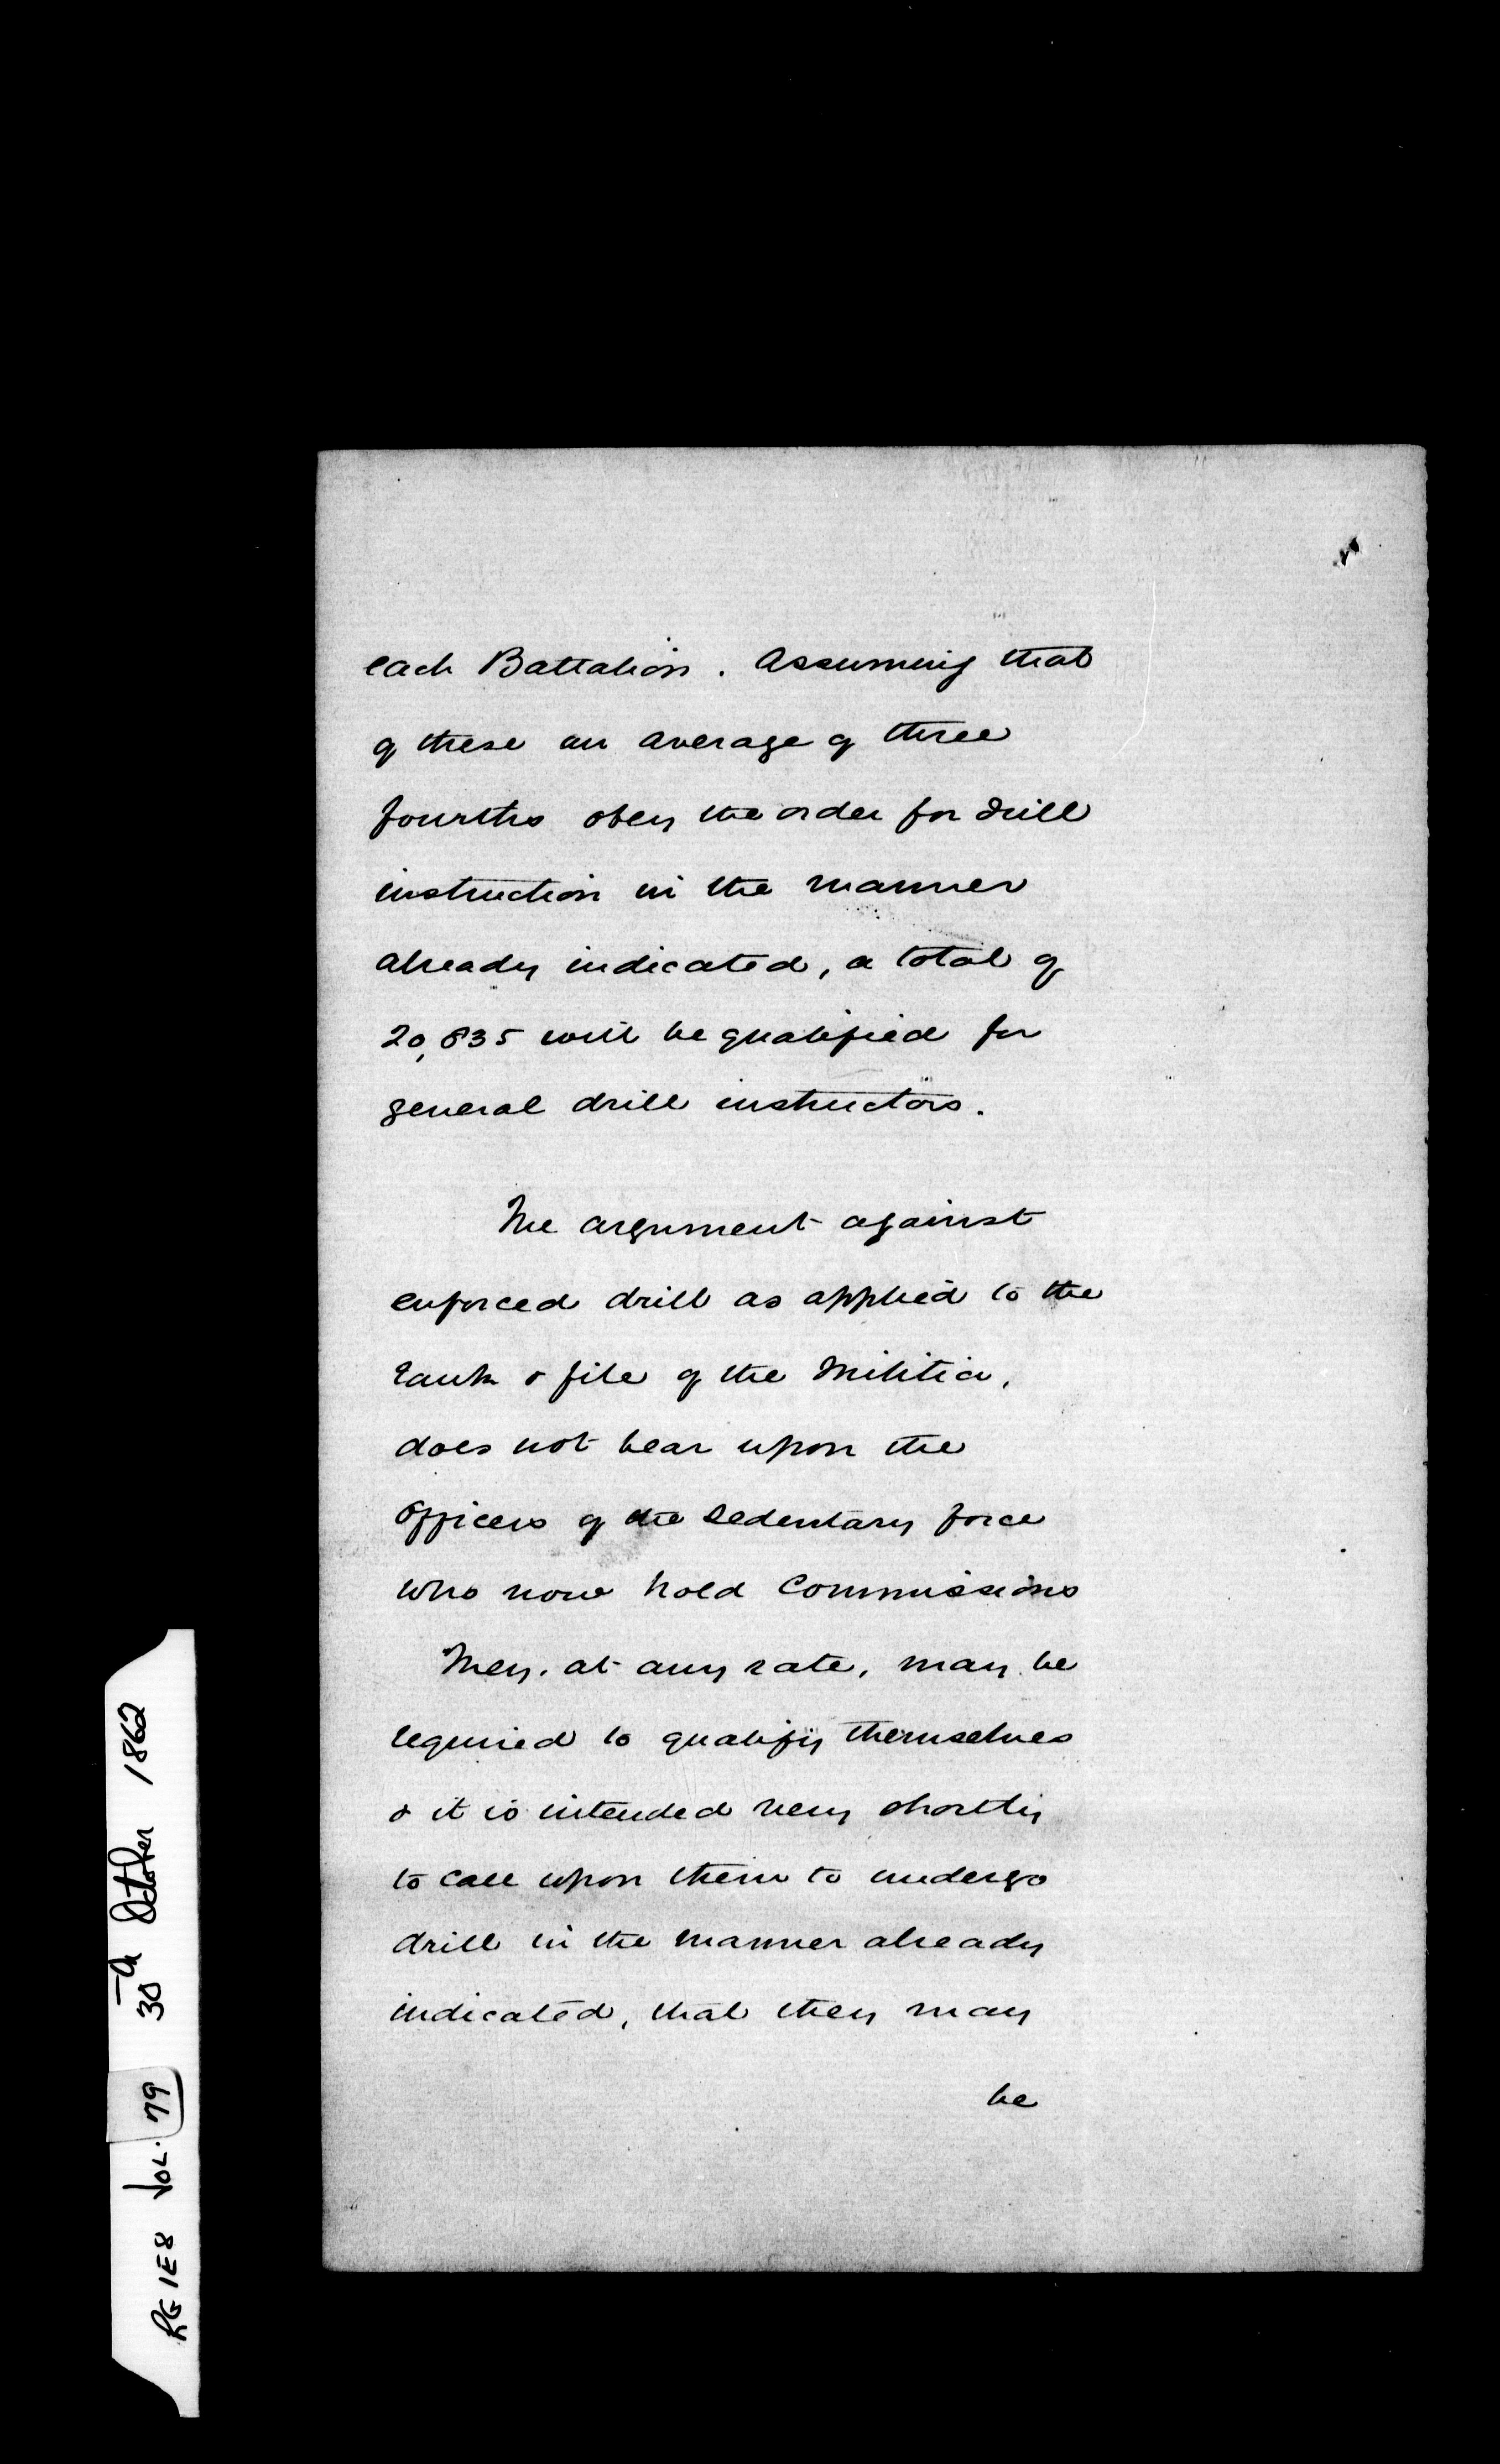 each Battalion. Assuming that
of these an average of three
fourths obey the order for drill
instruction in the manner
already indicated, a total of
20,835 will be qualified for
general drill instructors.
The argument against
enforced drill as applied to the
rank & file of the Militia,
does not bear upon the
Officers of the Sedentary force
who now hold Commissions
They, at any rate, may be
required to qualify themselves
& it is intended very shortly
to call upon them to undergo
drill in the manner already
indicated, that they may
be
RG 1E8 VOL. 79 30th October 1862